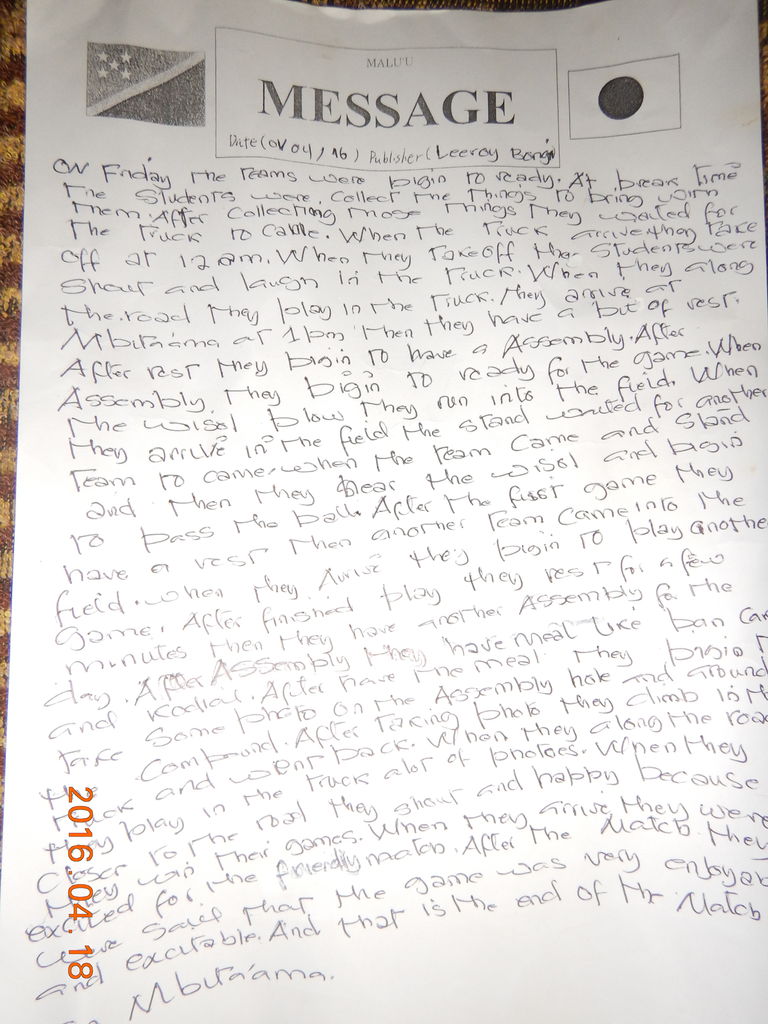 MALU'U
MESSAGE
Date (04/04/16) Publisher (Leeroy Bongi
On Friday the Teams were bigin to ready. At break Time
The Students were collect the Things To bring with
Them. After Collecting those Things They waited for
The Truck to came. When the Truck arrive they Take
off at 12 am. When they Takeoff the Students were
shout and laugh in the Truck. When they along
the road they play in the Truck. They arrive at
Mbita'ama at 1pm Then they have a bit of rest.
After rest they bigin to have a Assembly. After
Assembly. They bigin to ready for the game. When
The wisol blow they run into the field. When
They arrive in the field the stand waited for another
Team to came. when the team came and stand
and Then they hear the wisol and bigin
to pass the ball. After the first game they
have a rest Then another Team came into the
field. when they Arrive they bigin to play another
game. After finished play they rest for a few
minutes Then they have another Assembly for the
day. After Assembly they have meal like ban
and kodial. After have the meal They bigin
Take some photo on the Assembly hole and around
the Compound. After Taking photo they climb in
Truck and went back. When they along the road
they play in the truck alot of photoes. When they
closer to the road they shout and happy because
they win their games. When they arrive they were
excited for the friendly match. After the Match. They
were said that the game was very
and excitable. And that is the end of the Match
Mbita'ama.
2016.04.18